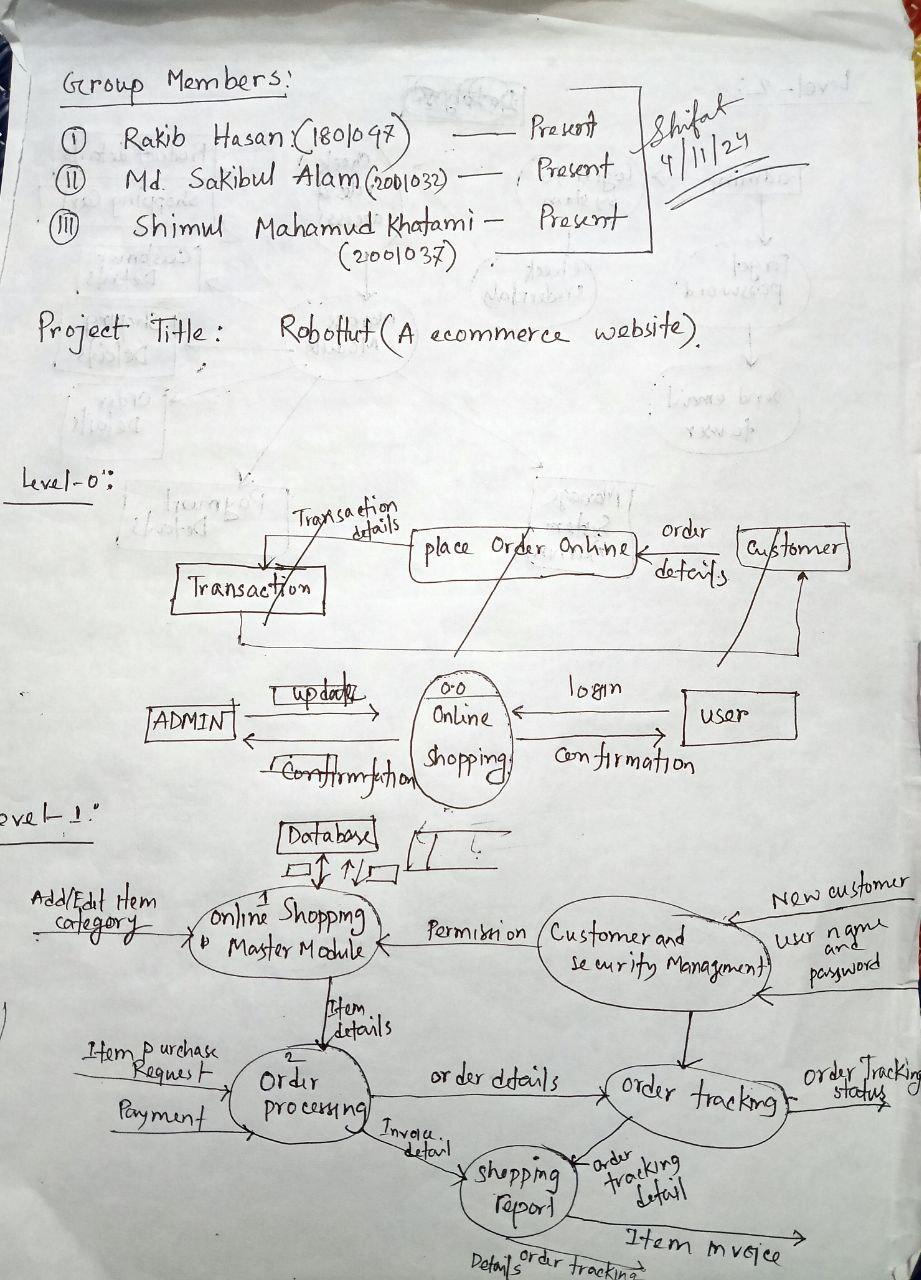 Group Members:
I Rakib Hasan (1801047) — Present
II Md. Sakibul Alam (2001032) — Present
III Shimul Mahamud Khatami — Present
(2001037)
Shifat
4/11/24
Project Title: RoboHut (A ecommerce website).
Level-0:
Transaction
details
place Order Online
order
details
Customer
Transaction
ADMIN
update
Confirmation
0.0
Online
Shopping
login
Confirmation
user
evel-1:
Database
Add/Edit Item
category
1
Online Shopping
Master Module
Permission
Customer and
Security Management
New customer
user name
and
password
Item
details
Item purchase
Request
Payment
2
Order
processing
order details
order tracking
Order Tracking
status
Invoice
detail
Shopping
report
order
tracking
detail
Item invoice
Details order tracking